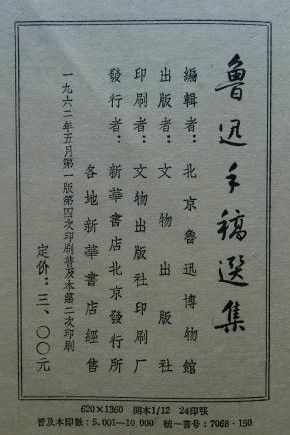 魯迅手稿選集
編輯者：北京魯迅博物館
出版者：文物出版社
印刷者：文物出版社印刷厂
發行者：新華書店北京發行所
各地新華書店經售
一九六二年五月第一版第四次印刷普及本第二次印刷
定价：三、〇〇元
620×1360 開本1/12 24印張
普及本印数：5,001—10,000 統一書号：7068·150